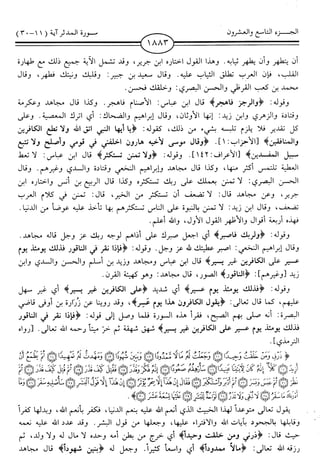 الجـــزء التاسع والعشرون
١٨٨٣
ســـورة المدثر آية (١١-٣٠)
أن يتطهر وأن يطهر ثيابه. وهذا القول اختاره ابن جرير، وقد تشمل الآية جميع ذلك مع طهارة
القلب، فإن العرب تطلق الثياب عليه. وقال سعيد بن جبير: وقلبك ونيتك فطهر، وقال
محمد بن كعب القرظي والحسن البصري: وخلقك فحسن.
وقوله: ﴿والرجز فاهجر﴾ قال ابن عباس: الأصنام فاهجر. وكذا قال مجاهد وعكرمة
وقتادة والزهري وابن زيد: إنها الأوثان، وقال إبراهيم والضحاك: أي اترك المعصية. وعلى
كل تقدير فلا يلزم تلبسه بشيء من ذلك، كقوله: ﴿يا أيها النبي اتق الله ولا تطع الكافرين
والمنافقين﴾ [الأحزاب: ١]. ﴿وقال موسى لأخيه هارون اخلفني في قومي وأصلح ولا تتبع
سبيل المفسدين﴾ [الأعراف: ١٤٢]. وقوله: ﴿ولا تمنن تستكثر﴾ قال ابن عباس: لا تعط
العطية تلتمس أكثر منها، وكذا قال مجاهد وإبراهيم النخعي وقتادة والسدي وغيرهم. وقال
الحسن البصري: لا تمنن بعملك على ربك تستكثره وكذا قال الربيع بن أنس واختاره ابن
جرير، وعن مجاهد قال: لا تضعف أن تستكثر من الخير، قال: تمنن في كلام العرب
تضعف، وقال ابن زيد: لا تمنن بالنبوة على الناس تستكثرهم بها تأخذ عليه عوضاً من الدنيا.
فهذه أربعة أقوال والأظهر القول الأول، والله أعلم.
وقوله: ﴿ولربك فاصبر﴾ أي اجعل صبرك على أذاهم لوجه ربك عز وجل قاله مجاهد.
وقال إبراهيم النخعي: اصبر عطيتك لله عز وجل. وقوله: ﴿فإذا نقر في الناقور فذلك يومئذ يوم
عسير على الكافرين غير يسير﴾ قال ابن عباس ومجاهد وزيد بن أسلم والحسن والسدي وابن
زيد [وغيرهم]: ﴿الناقور﴾ الصور، قال مجاهد: وهو كهيئة القرن.
وقوله: ﴿فذلك يومئذ يوم عسير﴾ أي شديد ﴿على الكافرين غير يسير﴾ أي غير سهل
عليهم، كما قال تعالى: ﴿يقول الكافرون هذا يوم عسر﴾، وقد روينا عن زرارة بن أوفى قاضي
البصرة: أنه صلى بهم الصبح، فقرأ هذه السورة فلما وصل إلى قوله: ﴿فإذا نقر في الناقور
فذلك يومئذ يوم عسير على الكافرين غير يسير﴾ شهق شهقة ثم خرّ ميتاً رحمه الله تعالى. [رواه
الترمذي].
يقول تعالى متوعداً لهذا الخبيث الذي أنعم الله عليه بنعم الدنيا، فكفر بأنعم الله، وبدلها كفراً
وقابلها بالجحود بآيات الله والافتراء عليها، وجعلها من قول البشر. وقد عدد الله عليه نعمه
حيث قال: ﴿ذرني ومن خلقت وحيداً﴾ أي خرج من بطن أمه وحده لا مال له ولا ولد، ثم
رزقه الله تعالى: ﴿مالاً ممدوداً﴾ أي واسعاً كثيراً. وجعل له ﴿بنين شهوداً﴾ قال مجاهد